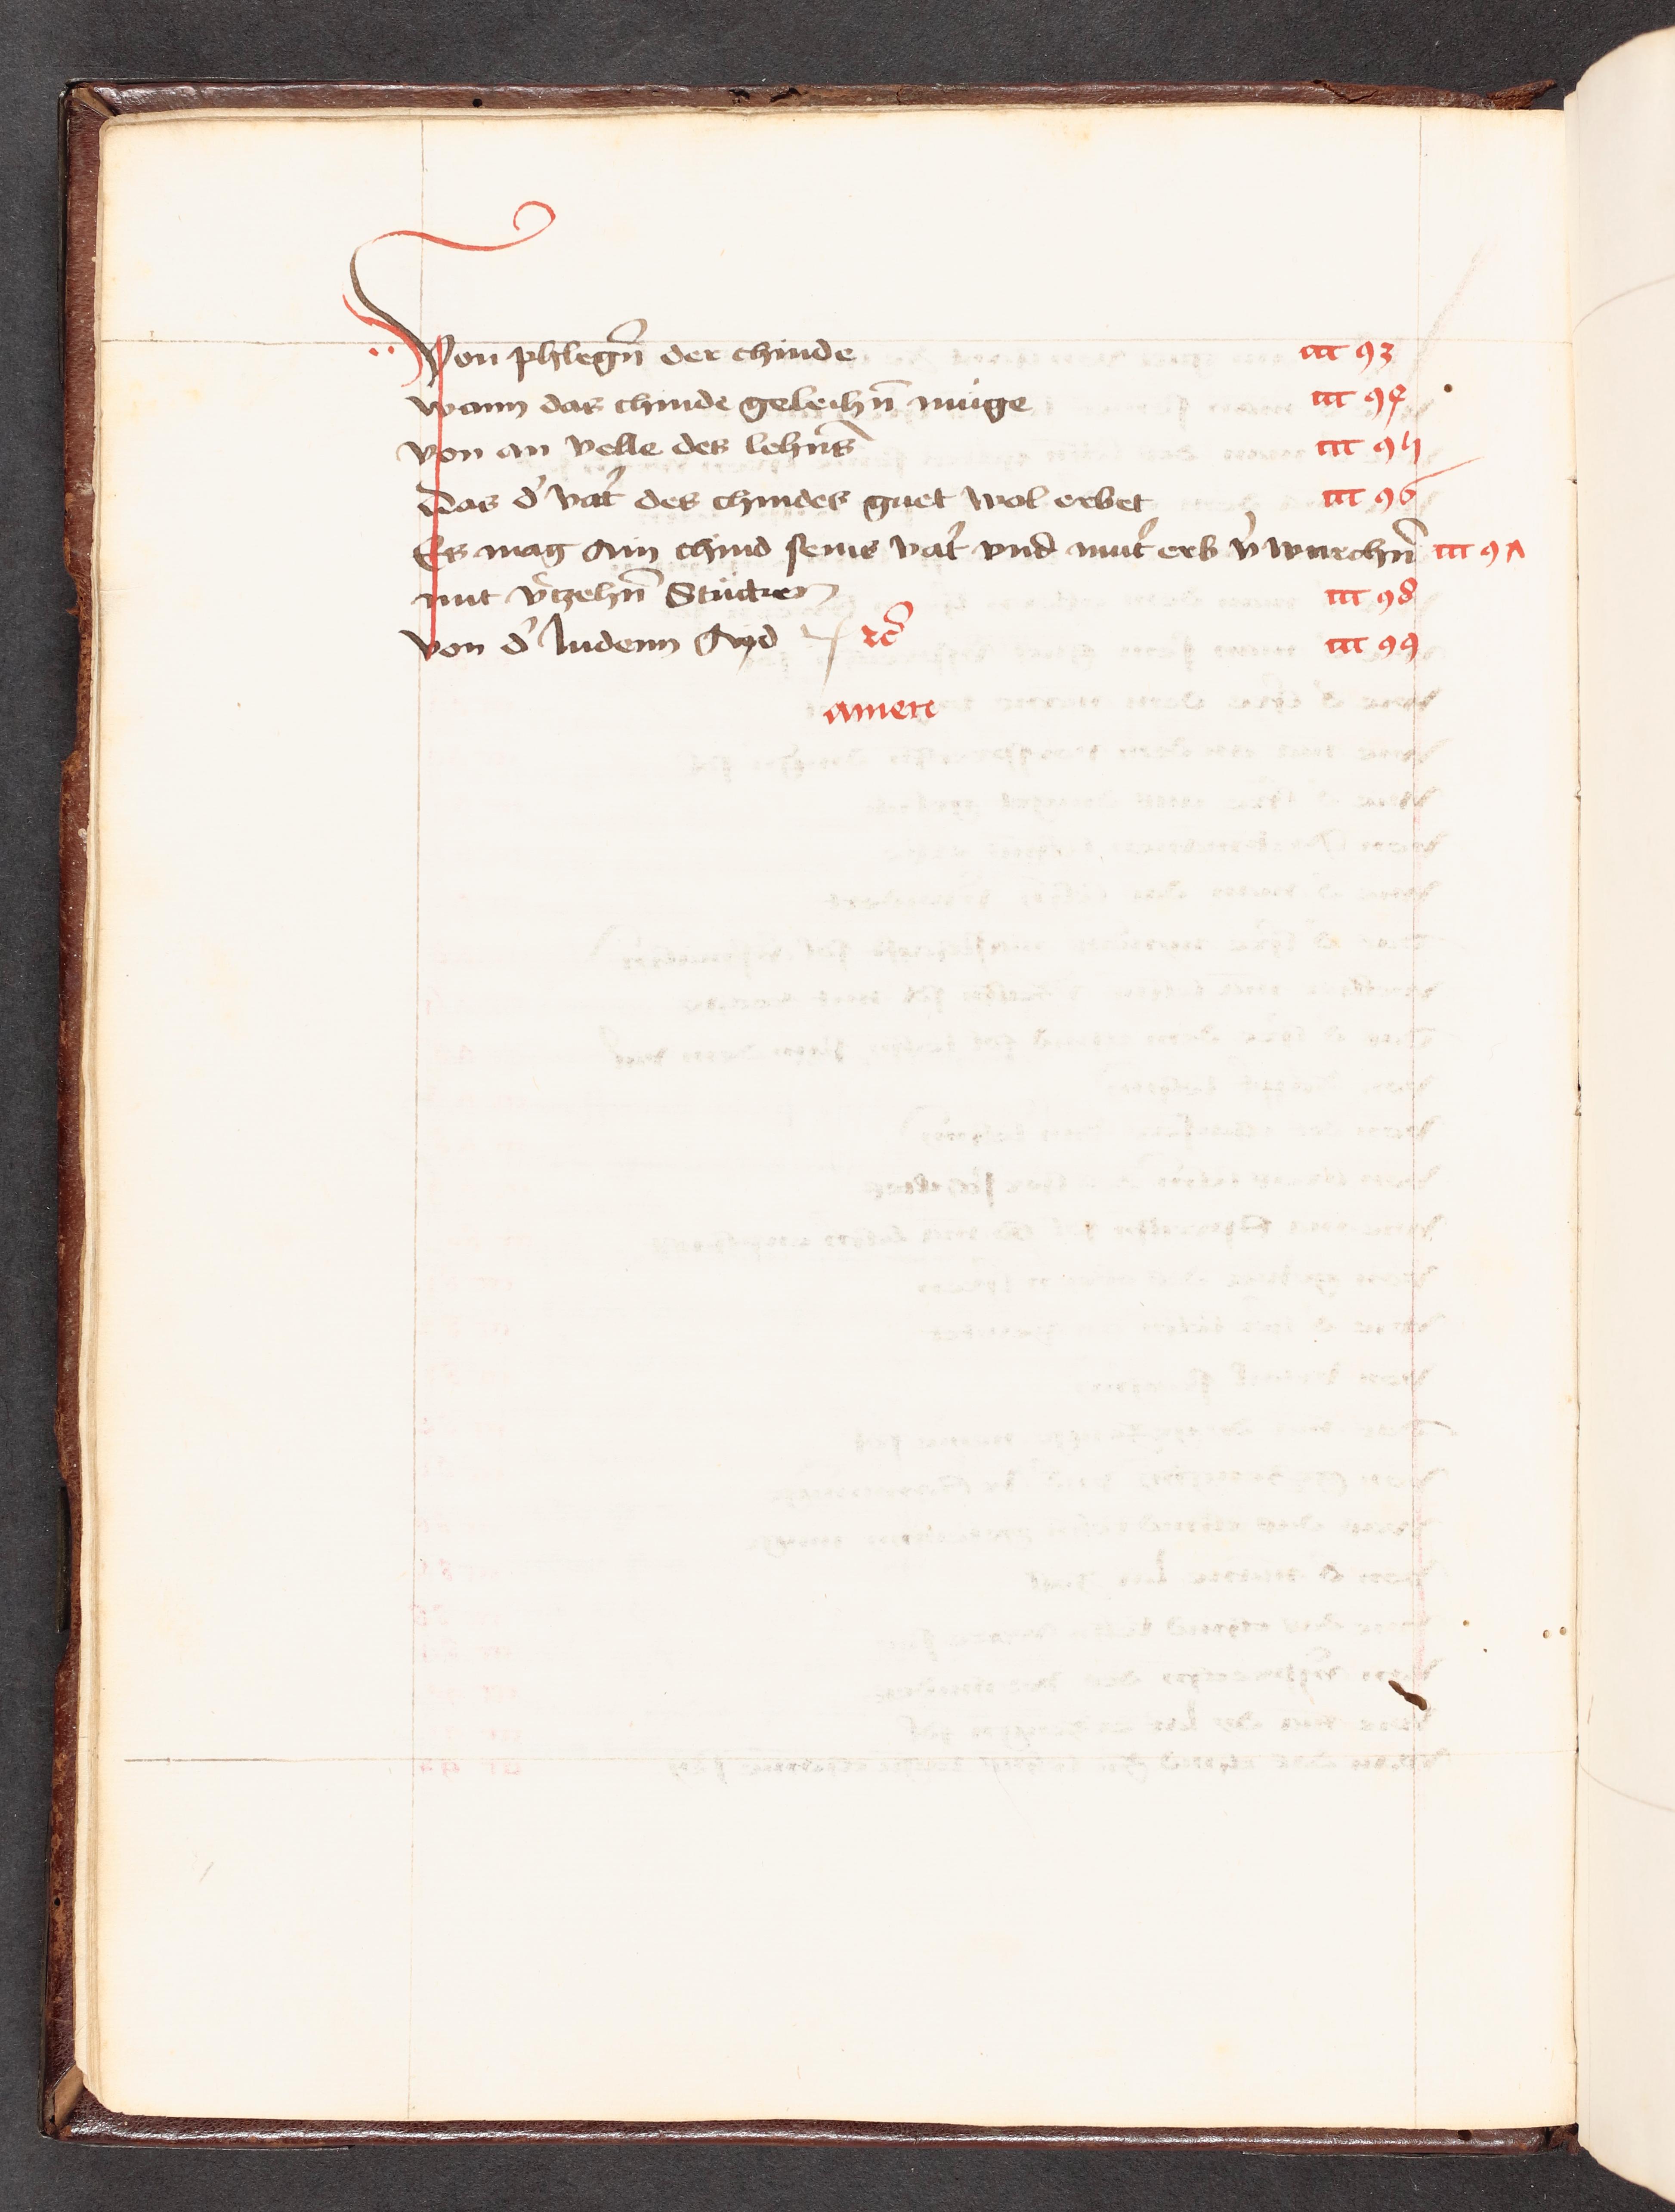 Von phlegn̄ der chinde ccc 93
wann das chinde geleihn̄ müge ccc 94
von an velle des lehns ccc 95
das d' vat' des chindes guet wol erbet ccc 96
Es mag Ain chind seins vat' vnd mut' erb v'wurchn̄ ccc 97
mit v'tzehn̄ Stücken ccc 98
von d' Juden Ayd rc̄ ccc 99
amen